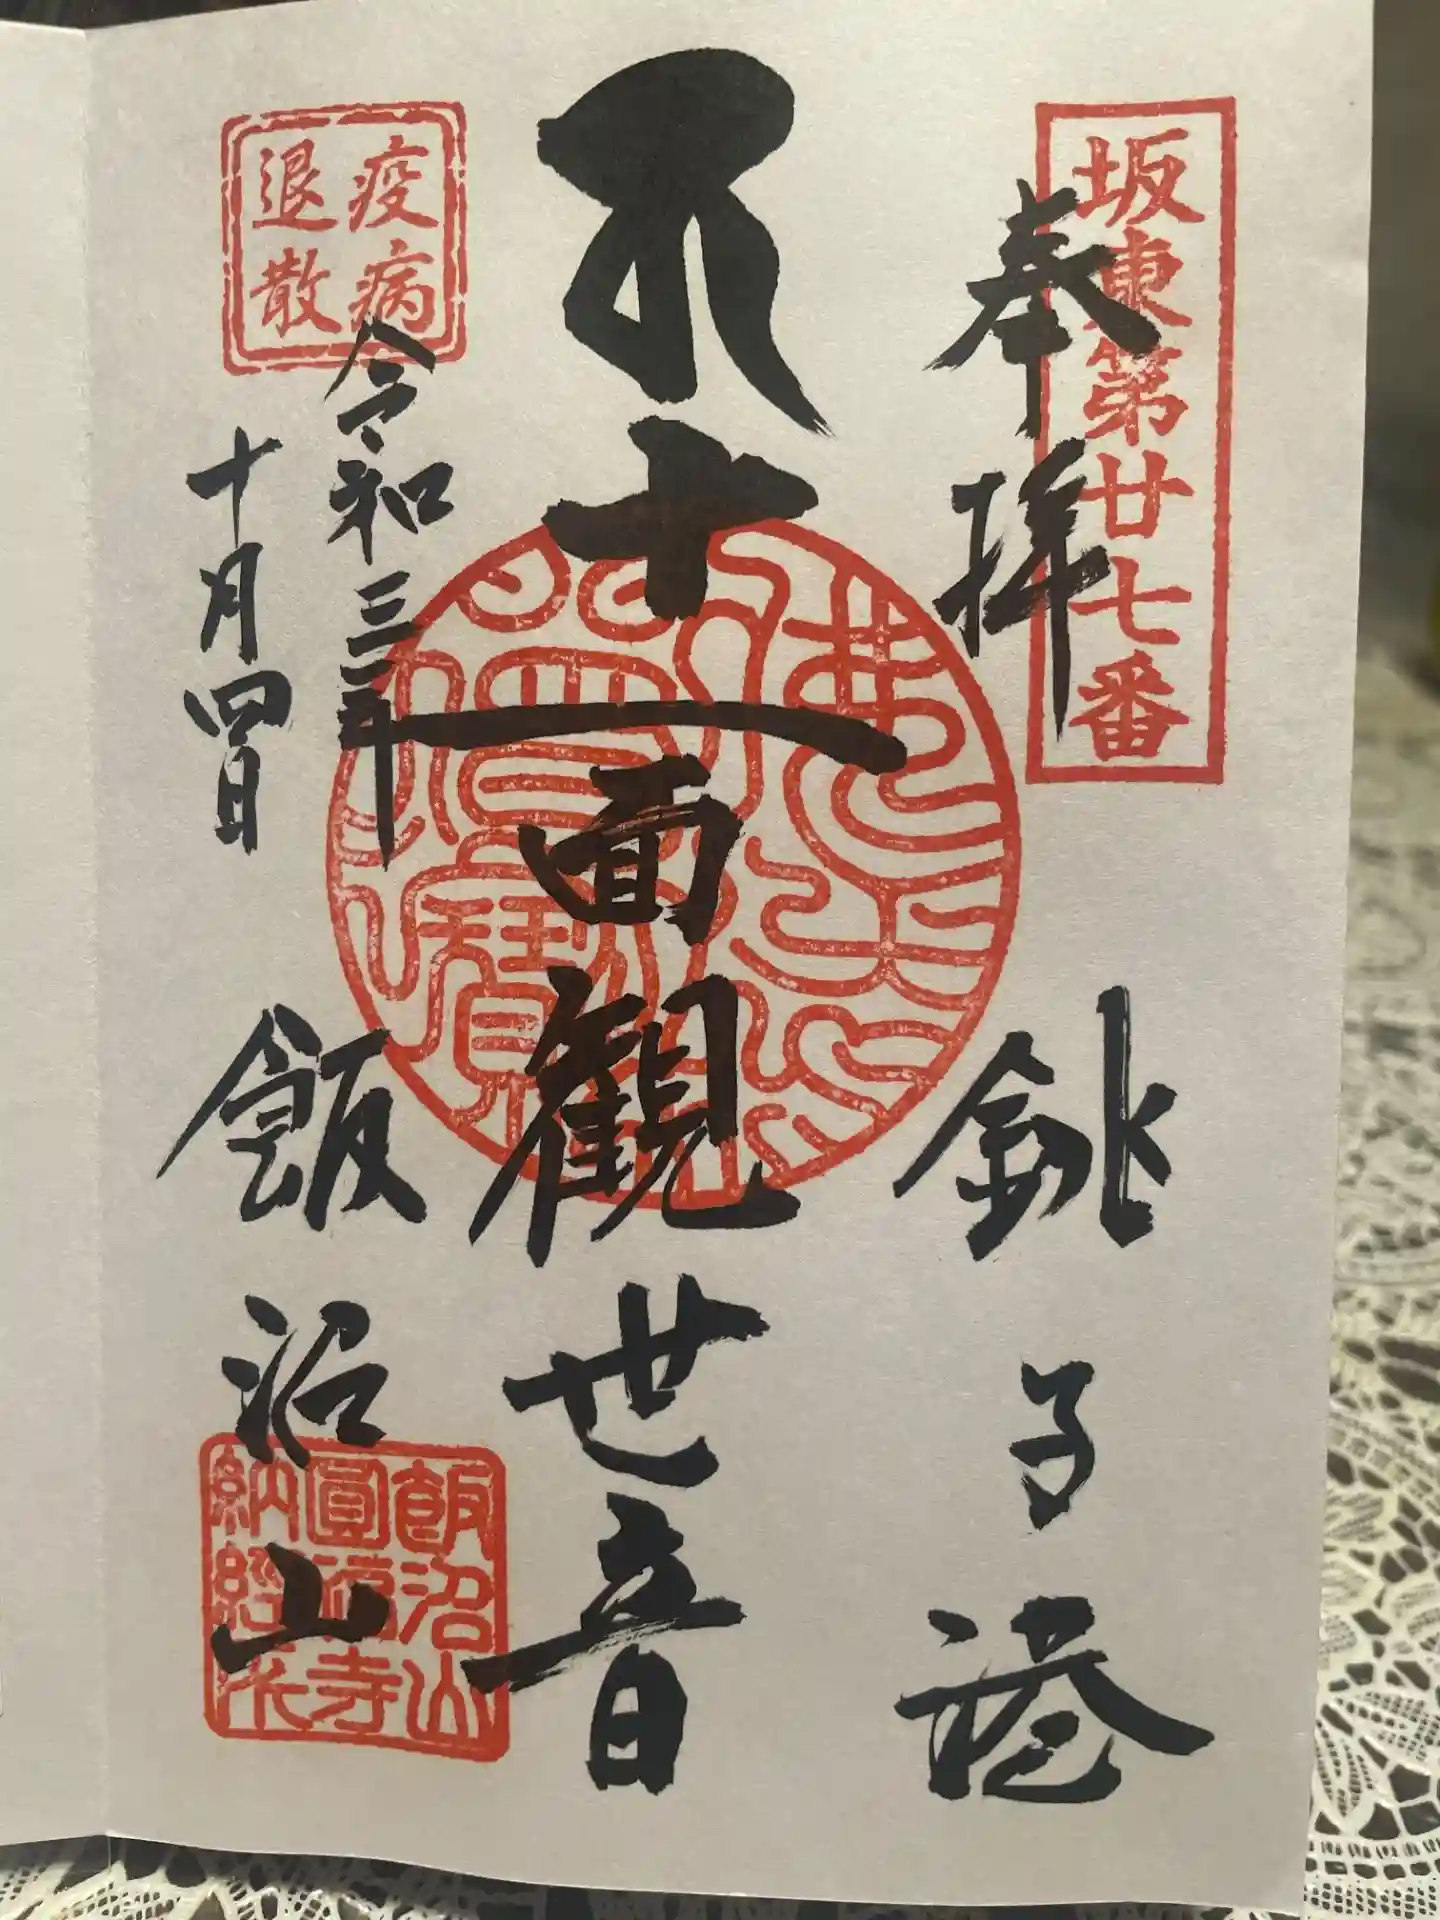 坂東第廿七番
奉拝
銚子港
十一面観世音
疫病
退散
令和三年
十月四日
飯沼山
飯沼山
圓福寺
納経